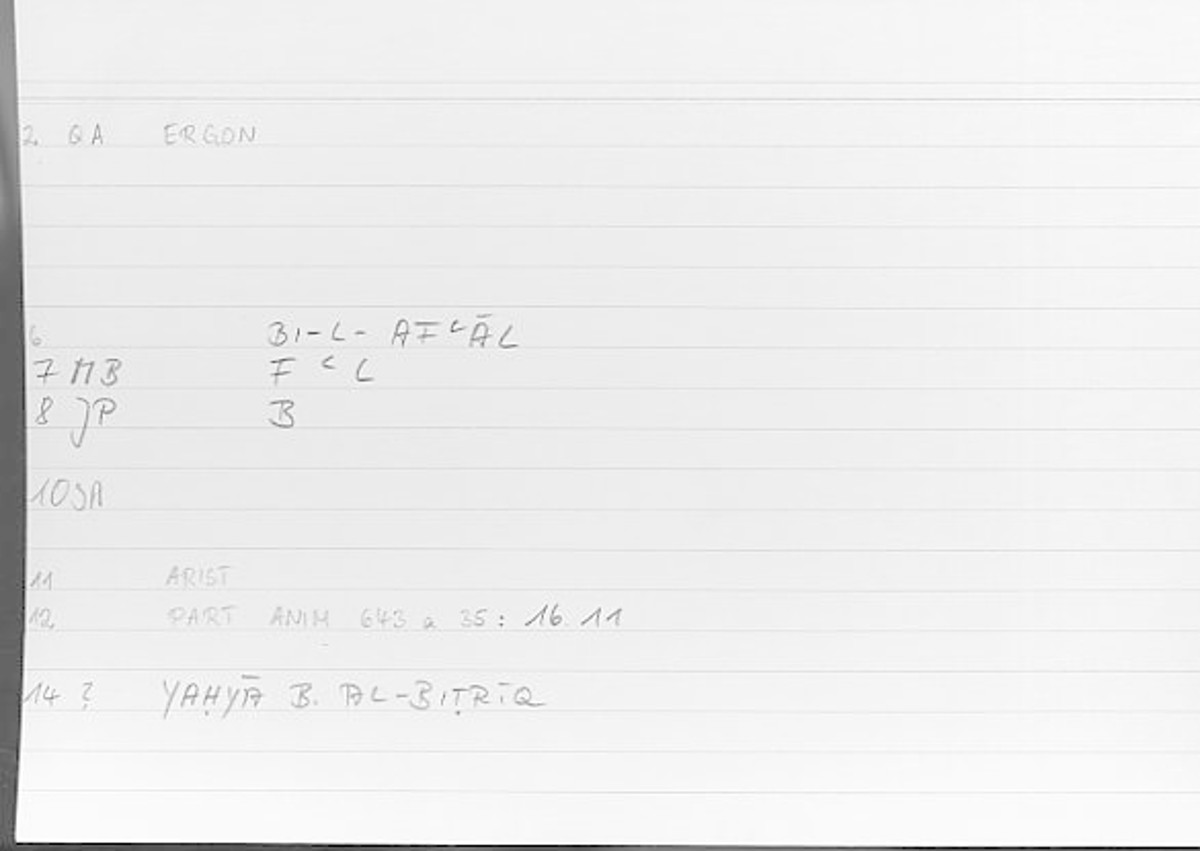 2 QA ERGON
6 BI-L-AFʿĀL
7 MB F ʿ L
8 JP B
10 JA
11 ARIST
12 PART ANIM 643 a 35: 16 11
14 ? YAḤYĀ B. AL-BIṬRĪQ